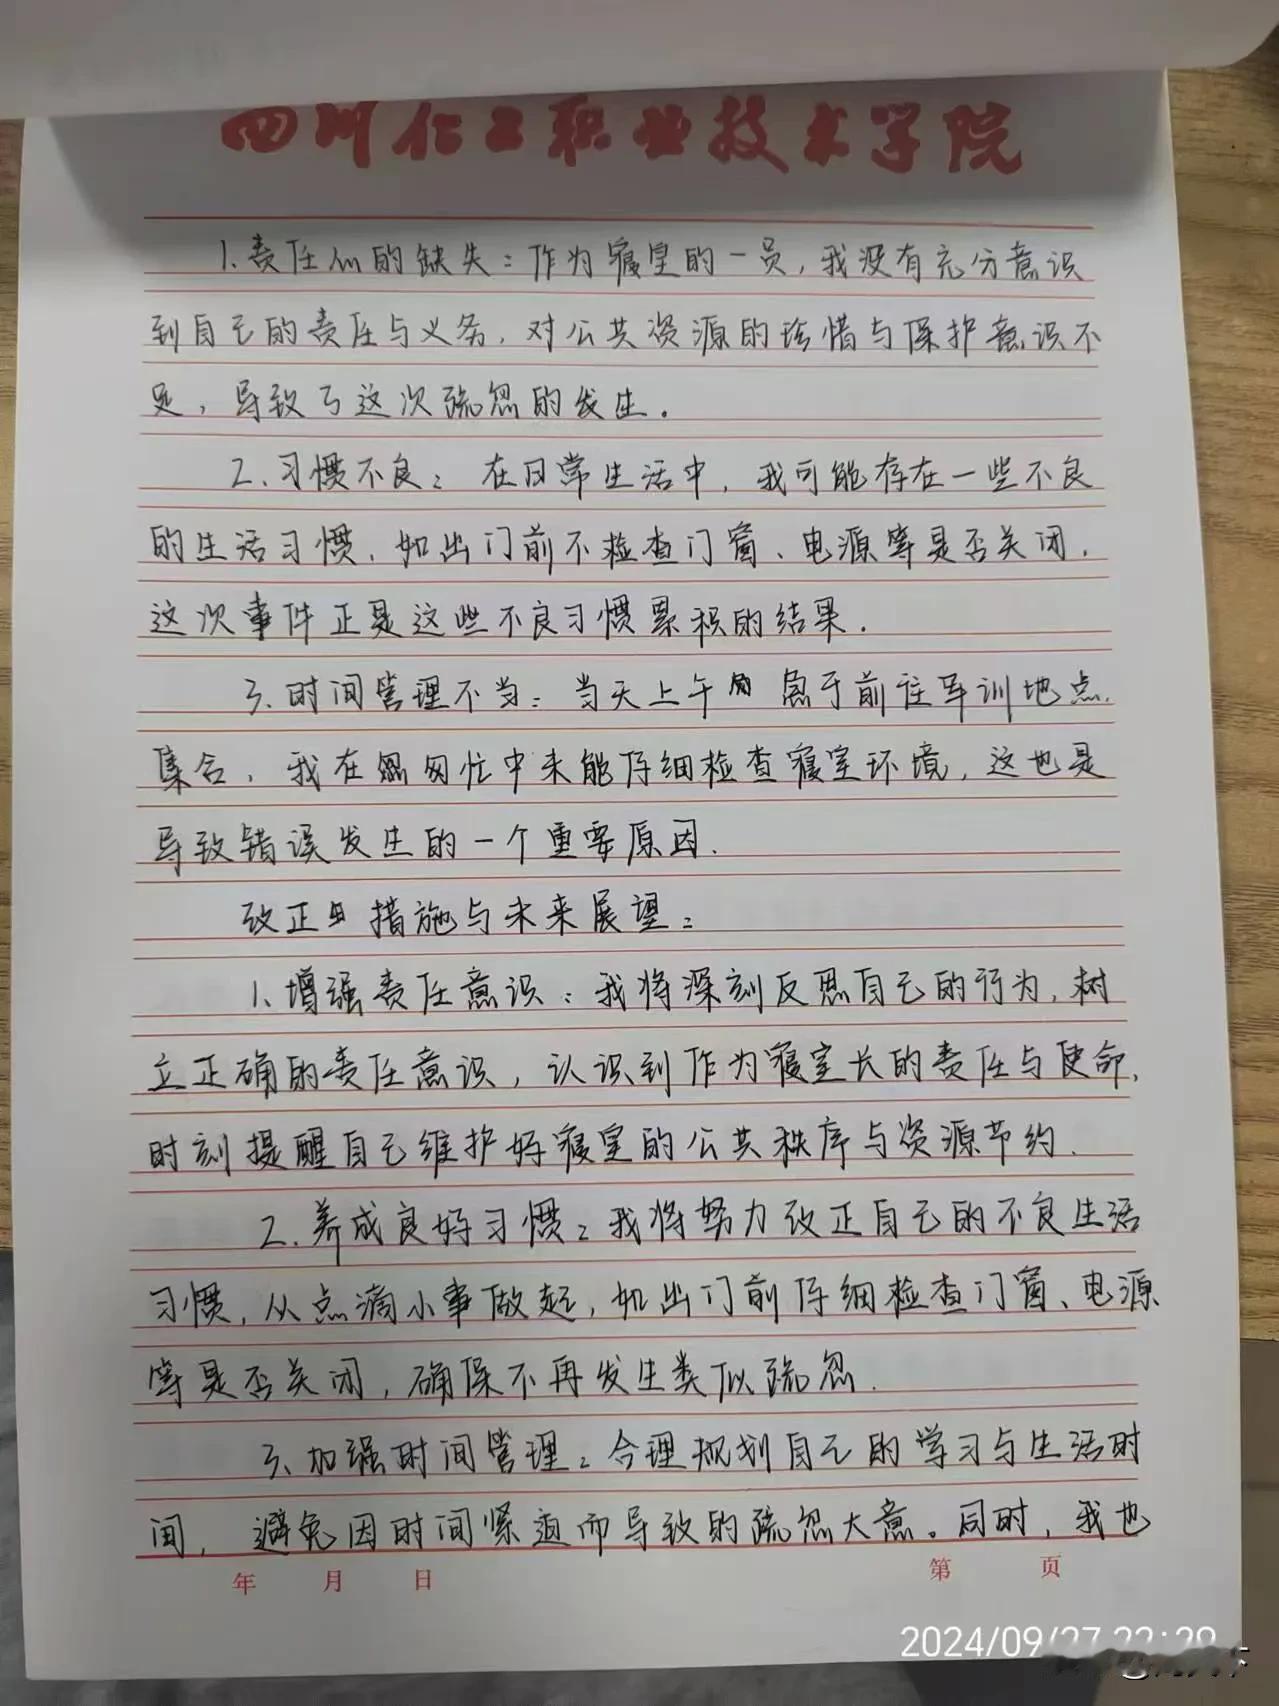 四川化工职业技术学院
1.责任心的缺失：作为寝室的一员，我没有充分意识
到自己的责任与义务，对公共资源的珍惜与保护意识不
足，导致了这次疏忽的发生。
2.习惯不良：在日常生活中，我可能存在一些不良
的生活习惯，如出门前不检查门窗、电源等是否关闭，
这次事件正是这些不良习惯累积的结果．
3.时间管理不当：当天上午 急于前往军训地点
集合，我在匆忙中未能仔细检查寝室环境，这也是
导致错误发生的一个重要原因．
改正 措施与未来展望：
1.增强责任意识：我将深刻反思自己的行为，树
立正确的责任意识，认识到作为寝室长的责任与使命，
时刻提醒自己维护好寝室的公共秩序与资源节约．
2.养成良好习惯：我将努力改正自己的不良生活
习惯，从点滴小事做起，如出门前仔细检查门窗、电源
等是否关闭，确保不再发生类似疏忽．
3.加强时间管理：合理规划自己的学习与生活时
间，避免因时间紧迫而导致的疏忽大意。同时，我也
年 月 日 第 页
2024/09/27